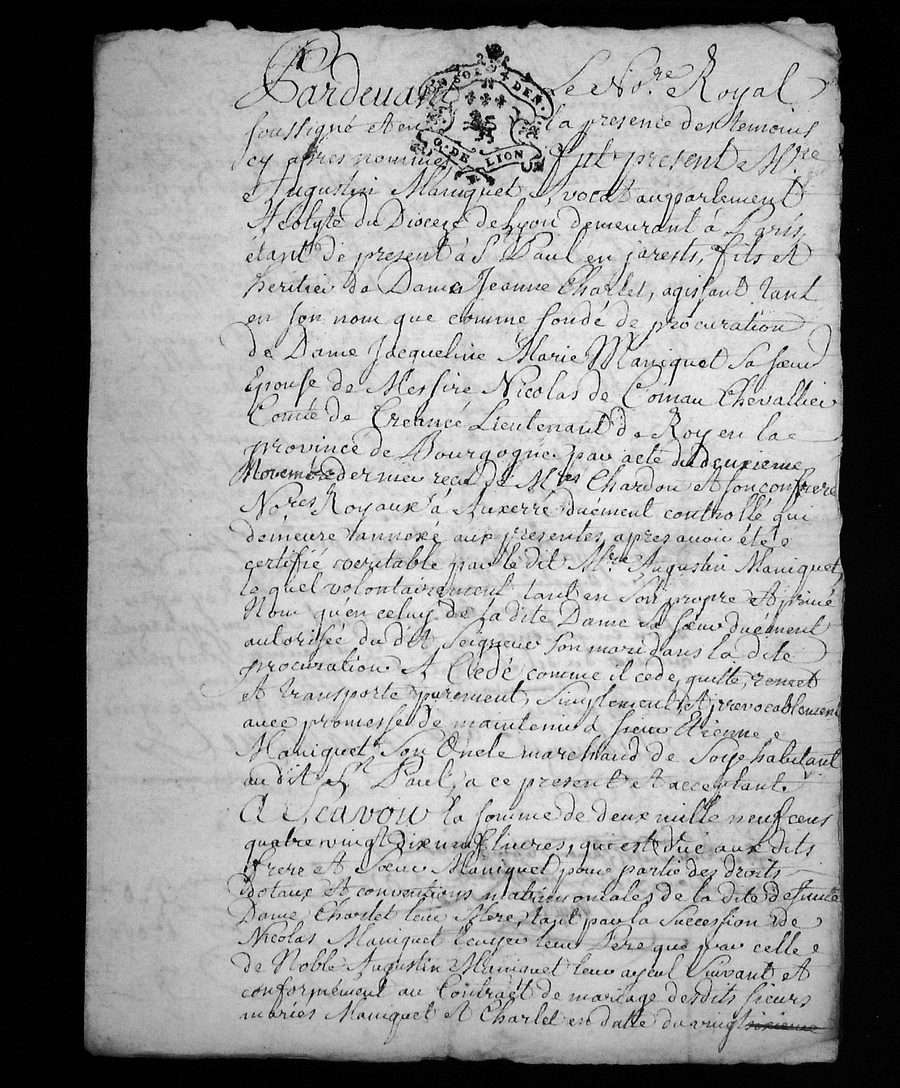 Pardevant le No.re Royal
soussigné et en la presence des temoins
cy apres nommés fut present M.re
Augustin Maniquet avocat au parlement
Acolyte du Dioceze de Lyon demeurant à Paris,
étant de present à S.t Paul en jarests, fils et
heritier de Dame Jeanne Charlet, agissant tant
en son nom que comme fondé de procuration
de Dame Jacqueline Marie Maniquet sa sœur
Epouse de Messire Nicolas de Comau Chevallier
Comte de Creancé Lieutenant de Roy en la
province de Bourgogne par acte du deuxieme
Novembre dernier receu de M.res Chardon et son confrere
No.res Royaux à Auxerre duement controllé qui
demeure annexé aux presentes, apres avoir été
certifié veritable par le dit M.re Augustin Maniquet,
le quel volontairement tant en son propre et privé
Nom qu'en celuy de la dite Dame sa sœur duëment
autorisée du dit Seigneur son mari dans la dite
procuration A Cedé, comme il cede, quitte, remet
et transporte purement, simplement et irrevocablement
avec promesse de maintenir à sieur Etienne
Maniquet son Oncle marchand de Soye habitant
au dit S.t Paul, a ce present et acceptant
A Scavoir la somme de deux mille neuf cens
quatre vingt dix neuf livres, qui est düe aux dits
frere et Sœur Maniquet pour partie des droits
dotaux et conventions matrimoniales de la dite defunte
Dame Charlet leur Mere, tant par la Succession de
Nicolas Maniquet Ecuyer leur Pere que par celle
de Noble Augustin Maniquet leur ayeul Suivant et
conformément au Contract de mariage desdits sieurs
mariés Maniquet et Charlet en datte du vingt
SOLS 4 DEN.
G. DE LION